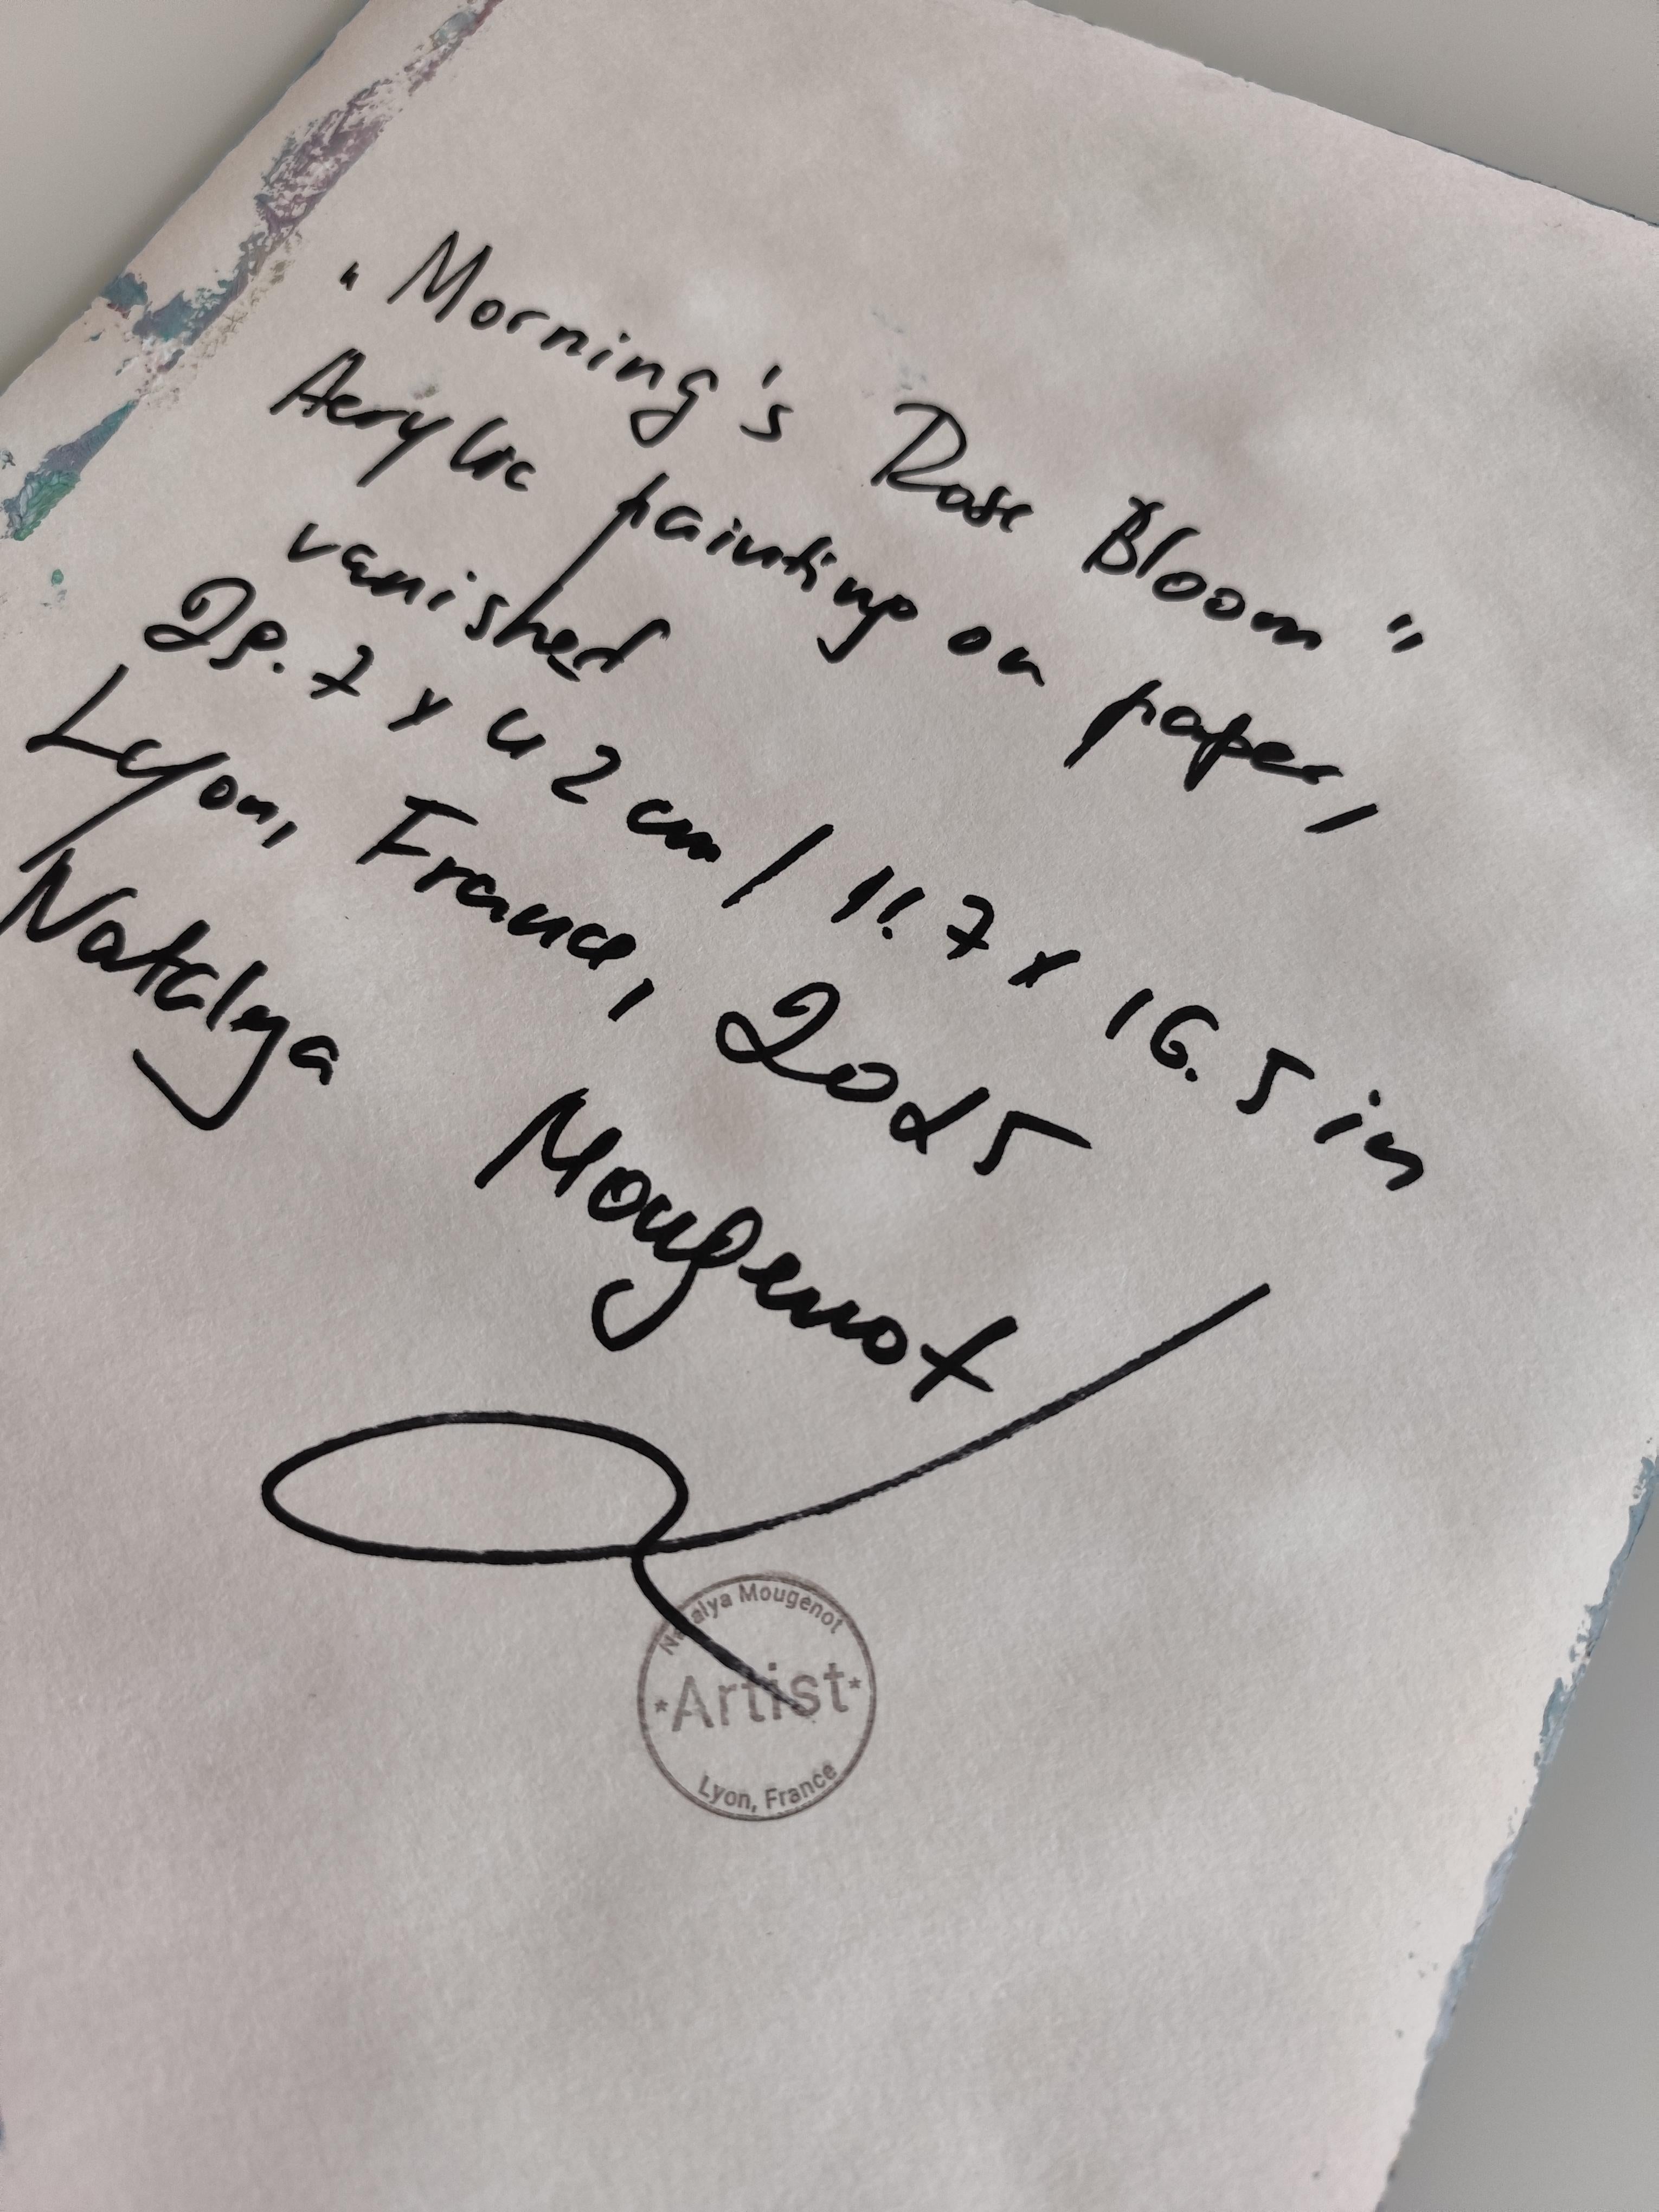 "Morning's Rose Bloom"
Acrylic painting on paper,
vanished
29.7 x 42 cm / 11.7 x 16.5 in
Lyon, France, 2025
Natalya Mougenot
Natalya Mougenot
*Artist*
Lyon, France